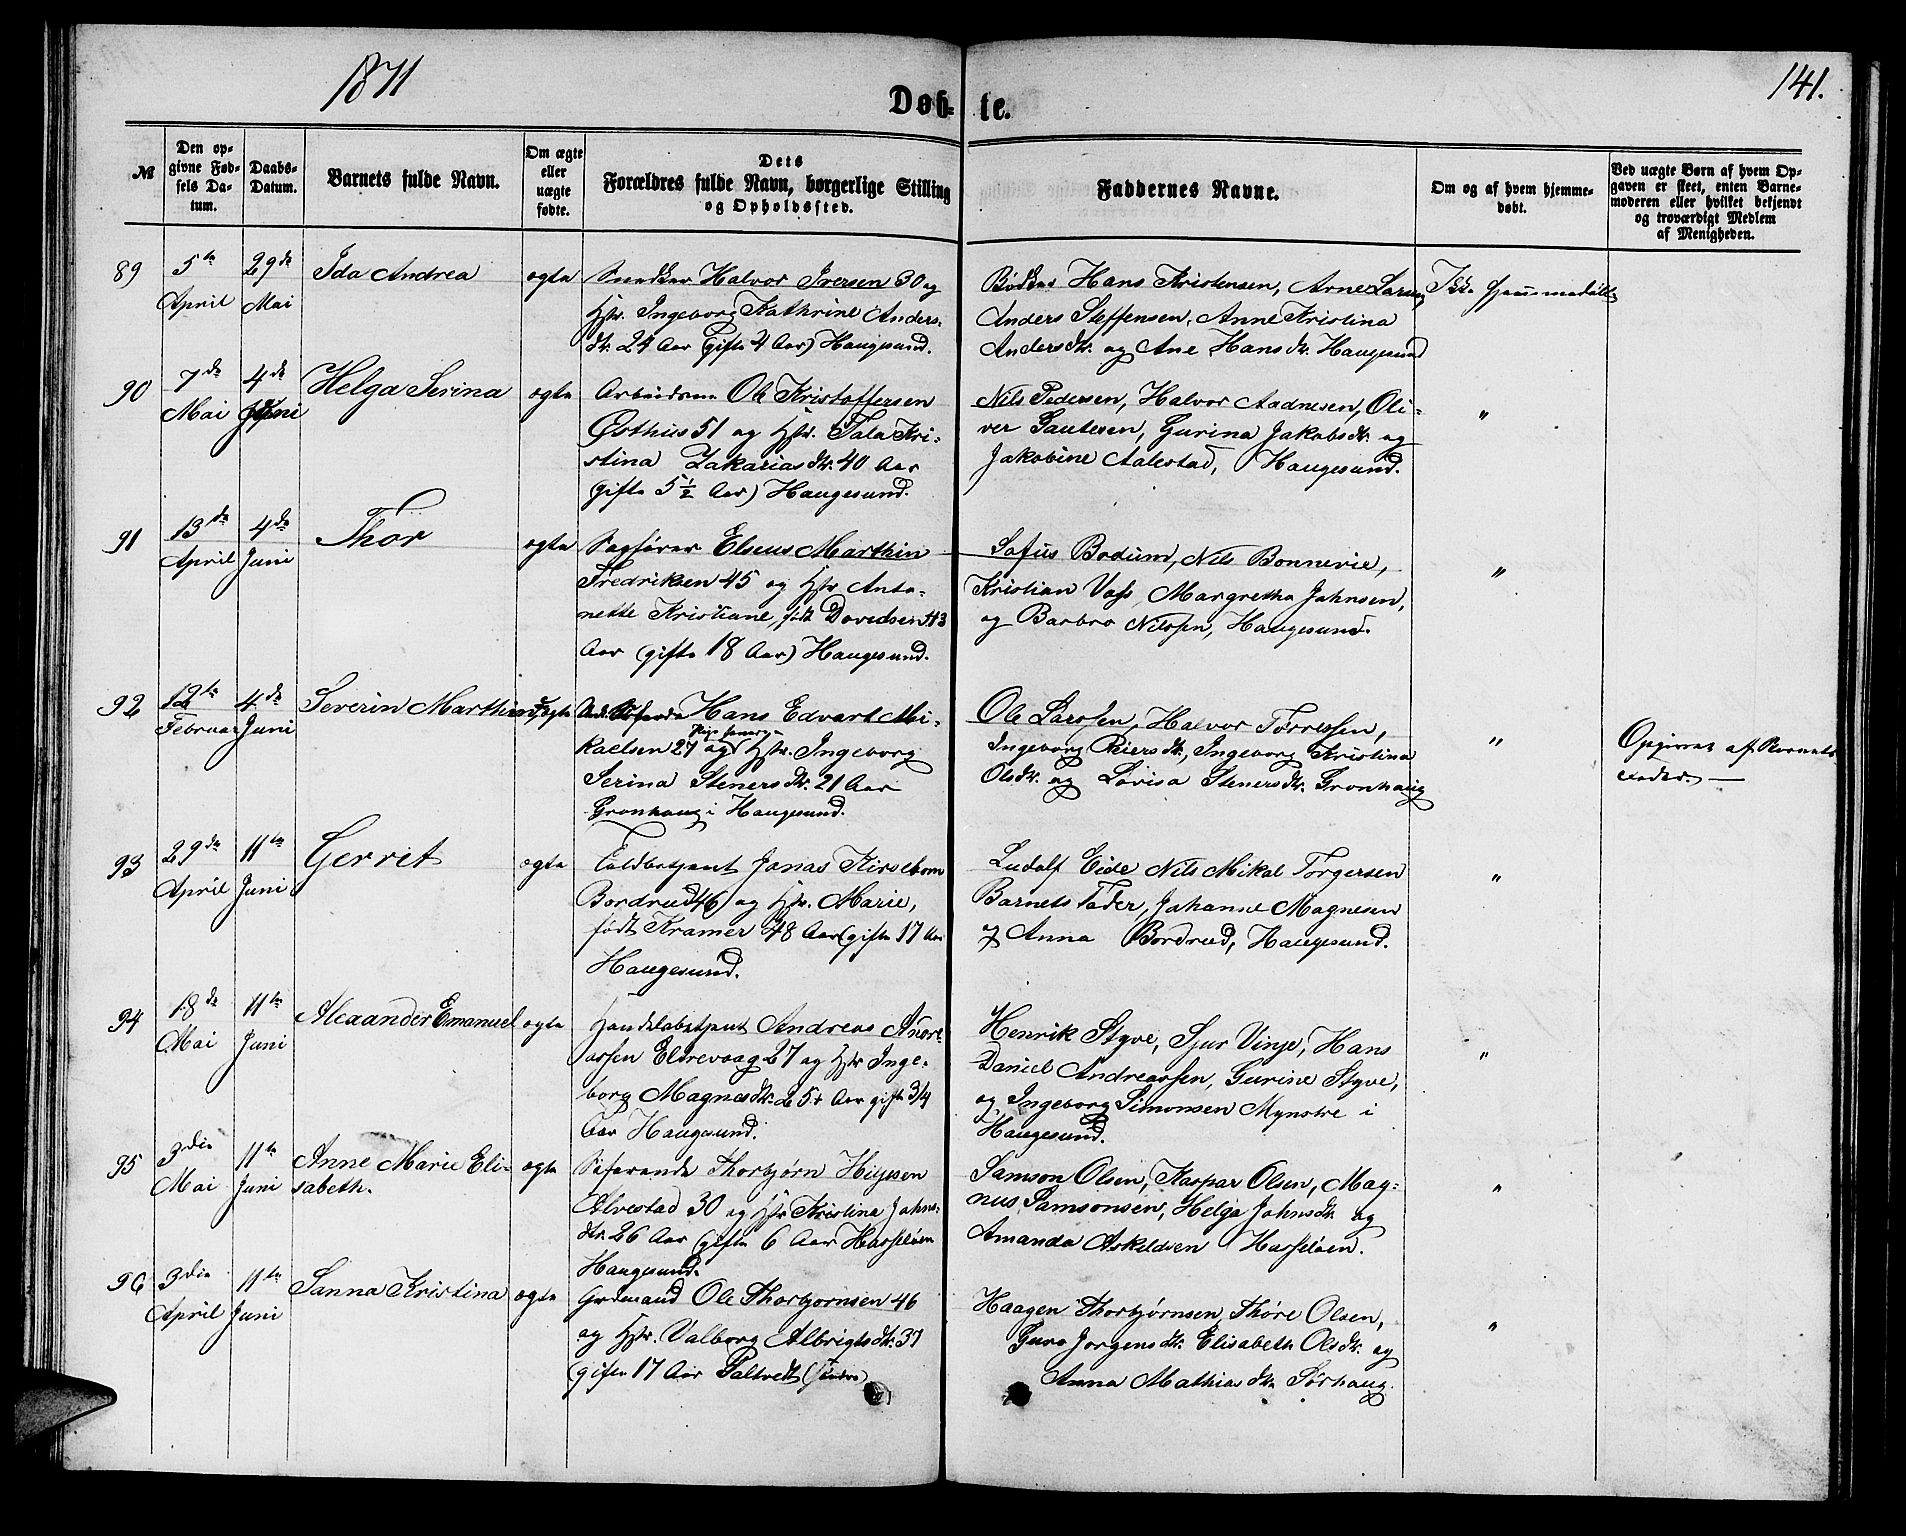 1871
141.
Døb- te.
№
Den op-
givne Fød-
sels Da-
tum.
Daabs-
Datum.
Barnets fulde Navn.
Om ægte
eller
uægte
fødte.
Dets
Forældres fulde Navn, borgerlige Stilling
og Opholdssted.
Faddernes Navne.
Om og af hvem hjemme-
døbt.
Ved uægte Børn af hvem Op-
gaven er skeet, enten Barne-
moderen eller hvilket bekjendt
og troværdigt Medlem
af Menigheden.
89
5te
April
29de
Mai
Ida Andrea
ægte
Halvor Iversen 30 og
Hstr. Ingeborg Kathrine Anders-
dtr. 24 Aar (gifte 4 Aar) Haugesund.
Bødker Hans Kristensen, Arne Larsen,
Anders Steffensen, Anne Kristina
Andersdtr. og Ane Hansdtr. Haugesund
Ikke hjemmedøbt
90
7de
Mai
4de
Juni
Helga Serina
ægte
Arbeidsm. Ole Kristoffersen
Østhus 51 og Hstr. Tala Kri-
stina Zakariasdtr. 40 Aar
(gifte 5½ Aar) Haugesund.
Nils Pedersen, Halvor Aadnesen, Oli-
ver Gautesen, Gurina Jakobsdtr. og
Jakobine Aalestad, Haugesund.
"
91
13de
April
4de
Juni
Thor
ægte
Sagfører Elseus Marthin
Fredriksen 45 og Hstr Anto-
nette Kristiane, født Davidsen 43
Aar (gifte 18 Aar) Haugesund.
Sofus Bodum, Nils Bonnevie,
Kristian Vass, Margretha Johnsen,
og Barbro Nilssen, Haugesund.
"
92
12te
Februar
4de
Juni
Severin
Hans Edvart Mi-
kaelsen 27 og Hstr. Ingeborg
Serina Stenersdtr. 21 Aar
Grønhaug i Haugesund.
Ole Larssen, Halvor Torressen,
Ingeborg Reiersdtr., Ingeborg Kristina
Olsdtr. og Lovisa Stenersdtr. Grønhaug
"
Opgivet af Barnets
Fader. —
93
29de
April
11te
Juni
Gerrit
ægte
Toldbetjent Jonas Kirsebom
Bordrud 46 og Hstr. Marie,
født Kramer 48 Aar (gifte 17 Aar
Haugesund.
Ludolf Eide Nils Mikal Torgersen
Barnets Fader, Johanne Magnesen
og Anna Bordrud, Haugesund.
"
94
18de
Mai
11te
Juni
Alexander Emanuel
ægte
Handelsbetjent Andreas Andre-
assen Elvevaag 27 og Hstr Inge-
borg Magnesdtr. 25 Aar gifte 3/4
Aar Haugesund.
Henrik Styve, Sjur Vinje, Hans
Daniel Andreassen, Gurine Styve,
og Ingeborg Simonsen Mynstre i
Haugesund.
"
95
3die
Mai
11te
Juni
Anne Marie Eli-
sabeth.
ægte
Søfarende Thorbjørn
Alvestad 30 og Hstr Kristina Johns-
dtr. 26 Aar (gifte 6 Aar Hasseløen
Haugesund.
Samson Olsen, Kaspar Olsen, Mag-
nus Samsonsen, Helga Johnsdtr. og
Amanda Askildsen Hasseløen.
"
96
3die
April
11te
Juni
Sanna Kristina
ægte
Grdmand Ole Thorbjørnsen 46
og Hstr. Valborg Albrigtsdtr. 37
(gifte 17 Aar Saltvedt
Haagen Thorbjørnsen, Thore Olsen,
Guro Jorgensdtr. Elisabeth Olsdtr. og
Anna Mathiasdtr. Sørhaug.
"